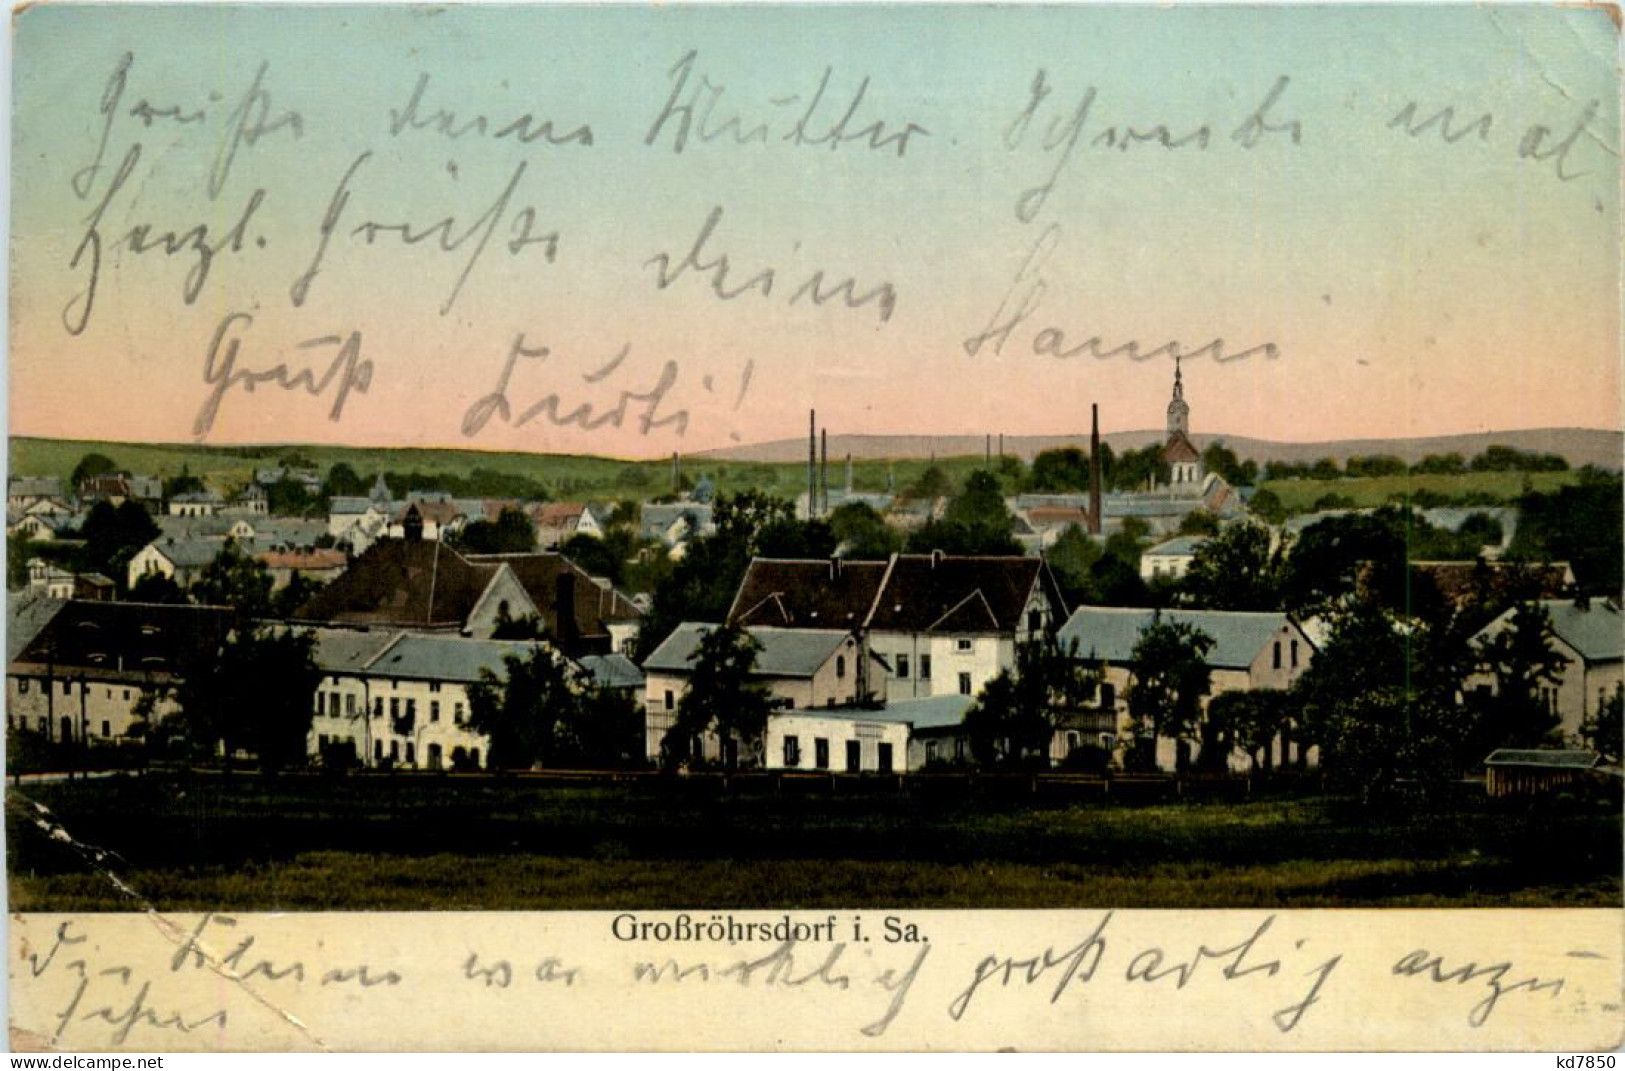 Grüße deine Mutter. Schreibe mal
Herzl. Grüße deine Hanni
Gruß Kurti!
Großröhrsdorf i. Sa.
die Kleine war wirklich großartig anzu-
sehen
delcampe.net
kd7850